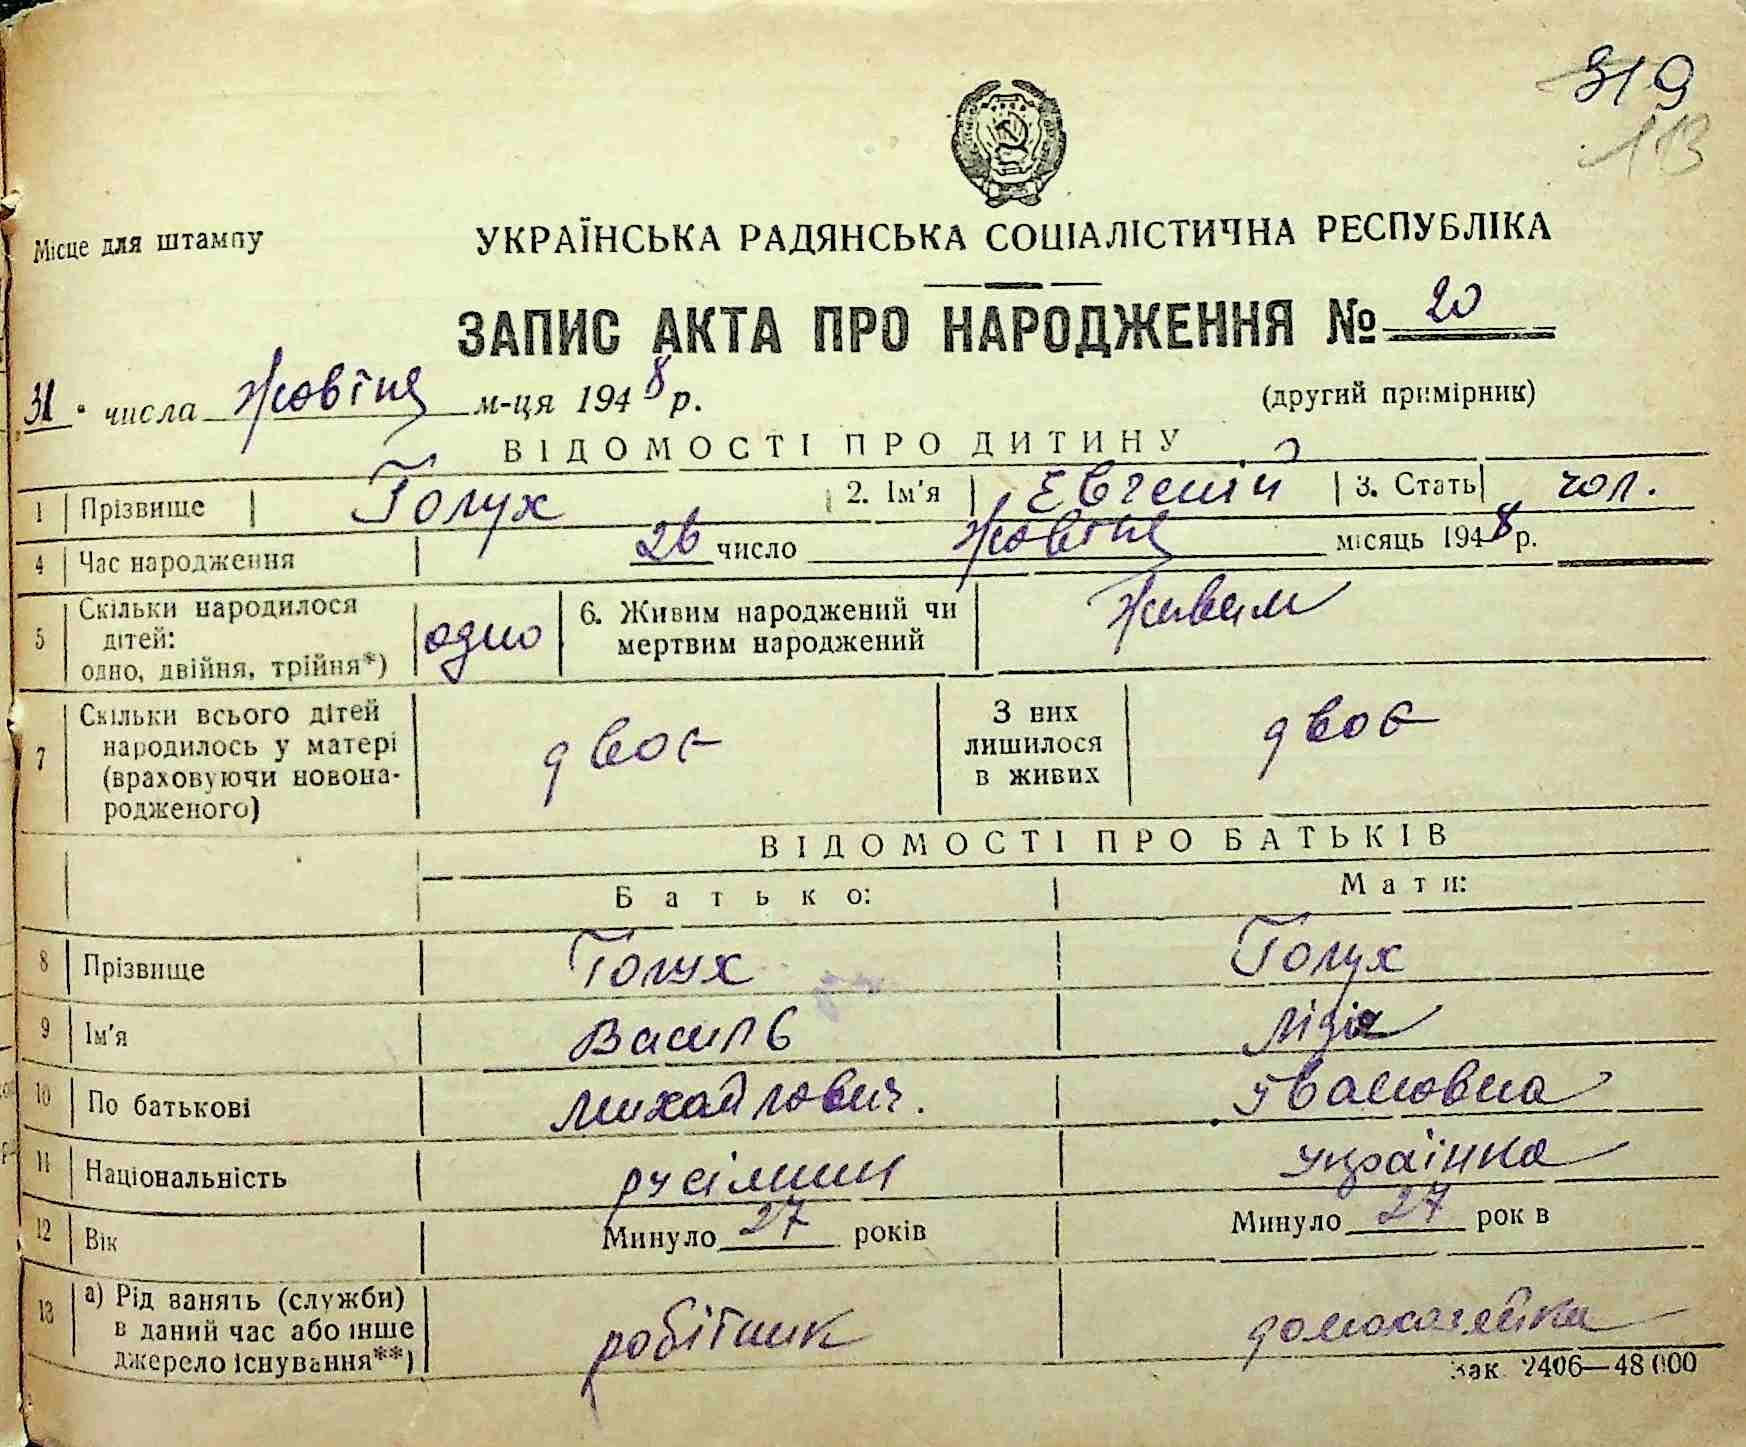 319
113
Місце для штампу
УКРАЇНСЬКА РАДЯНСЬКА СОЦІАЛІСТИЧНА РЕСПУБЛІКА
ЗАПИС АКТА ПРО НАРОДЖЕННЯ № 20
31 числа Жовтня м-ця 1948 р.
(другий примірник)
ВІДОМОСТІ ПРО ДИТИНУ
1 Прізвище Голух 2. Ім'я Євгеній 3. Стать чол.
4 Час народження 26 число Жовтня місяць 1948 р.
5 Скільки народилося дітей: одно, двійня, трійня*) одно 6. Живим народжений чи мертвим народжений Живим
7 Скільки всього дітей народилось у матері (враховуючи новонародженого) двоє З них лишилося в живих двоє
ВІДОМОСТІ ПРО БАТЬКІВ
Батько: Мати:
8 Прізвище Голух Голух
9 Ім'я Василь Лідія
10 По батькові Михайлович. Івановна
11 Національність русільин українка
12 Вік Минуло 27 років Минуло 27 рок в
13 а) Рід занять (служби) в даний час або інше джерело існування**) робітник домохазяйка
Зак. 2406—48 000